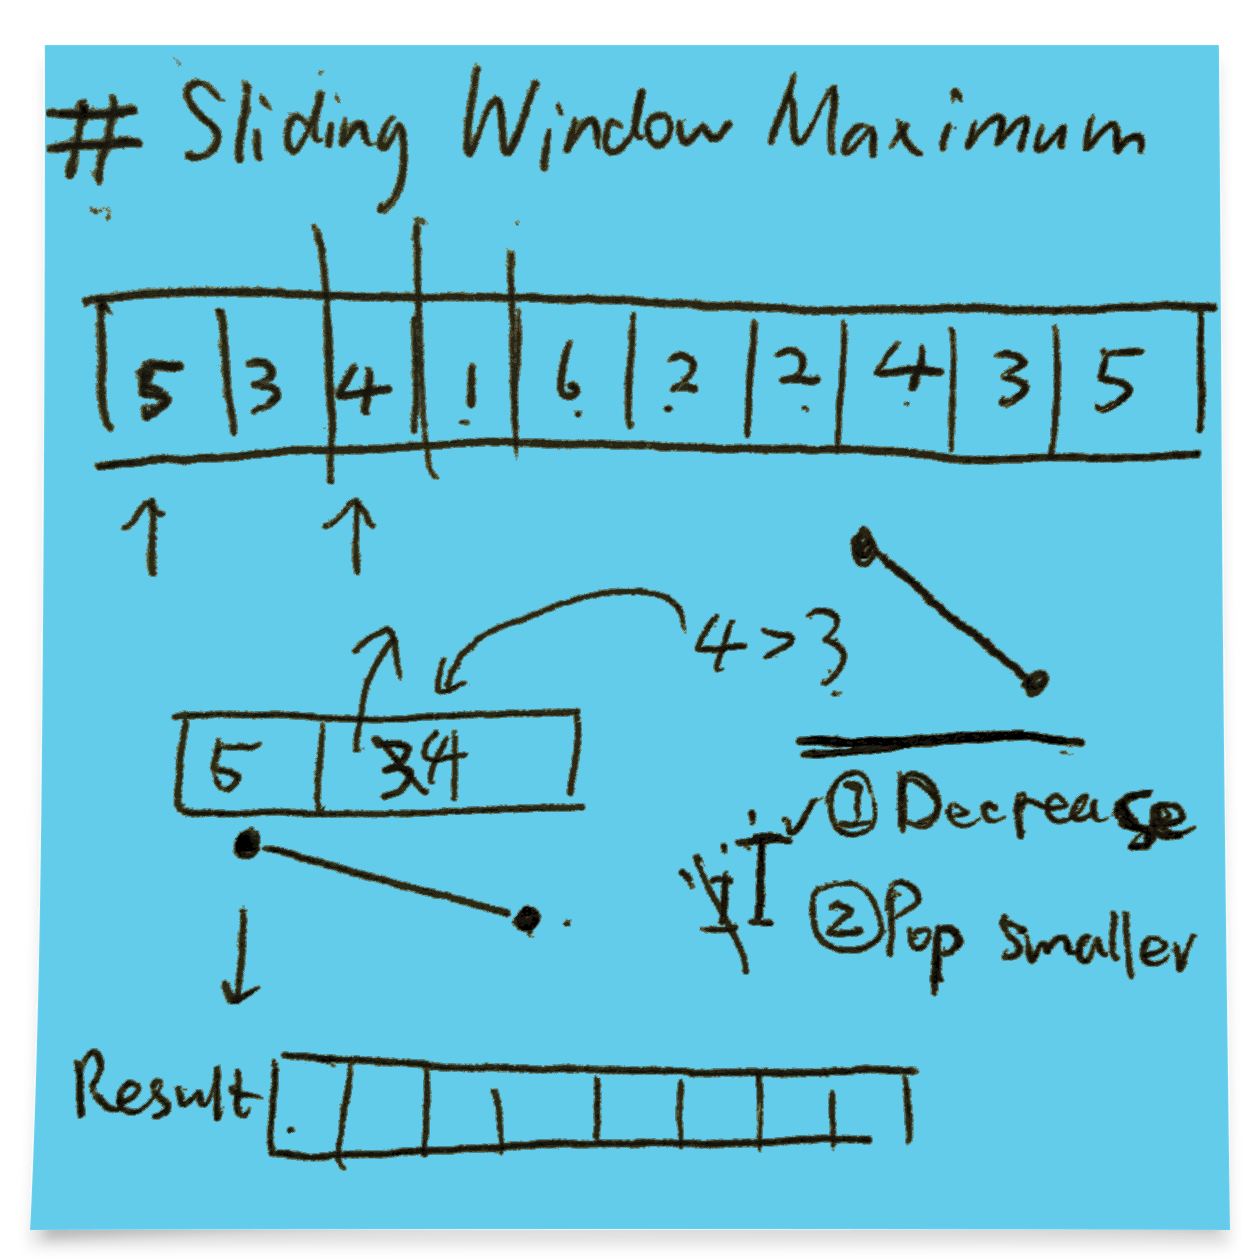 # Sliding Window Maximum
5 3 4 1 6 2 2 4 3 5
4 > 3
5 3 4
① Decrease
② Pop smaller
Result